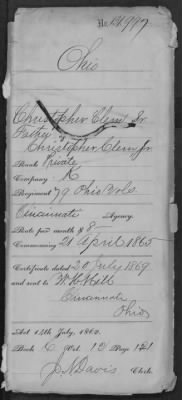 No. 134,987
Ohio
Christopher Clem Sr.
Father of
Christopher Clem Jr.
Rank Private
Company K
Regiment 79 Ohio Vols.
Cincinnati Agency.
Rate per month $ 8
Commencing 21 April 1865
Certificate dated 20 July 1869
and sent to W. H. Hill
Cincinnati
Ohio
Act 14th July, 1862.
Book C Vol. 12 Page 121
J. N. Davis Clerk.